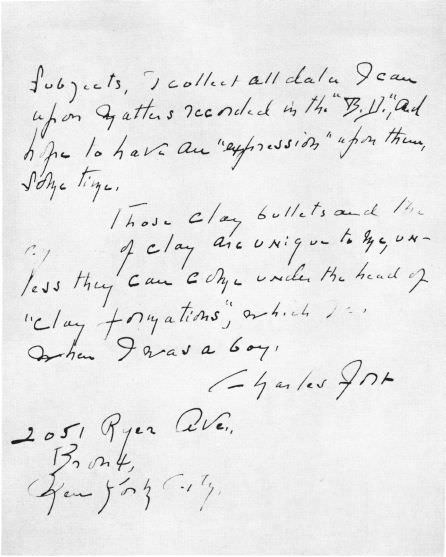 subjects, I collect all data I can
upon matters recorded in the "B.D.", and
hope to have an "expression" upon them,
some time.
Those clay bullets and the
of clay are unique to me, un-
less they can come under the head of
"clay formations", which
when I was a boy.
Charles Fort
2051 Ryer Ave.,
Bronx,
New York City.